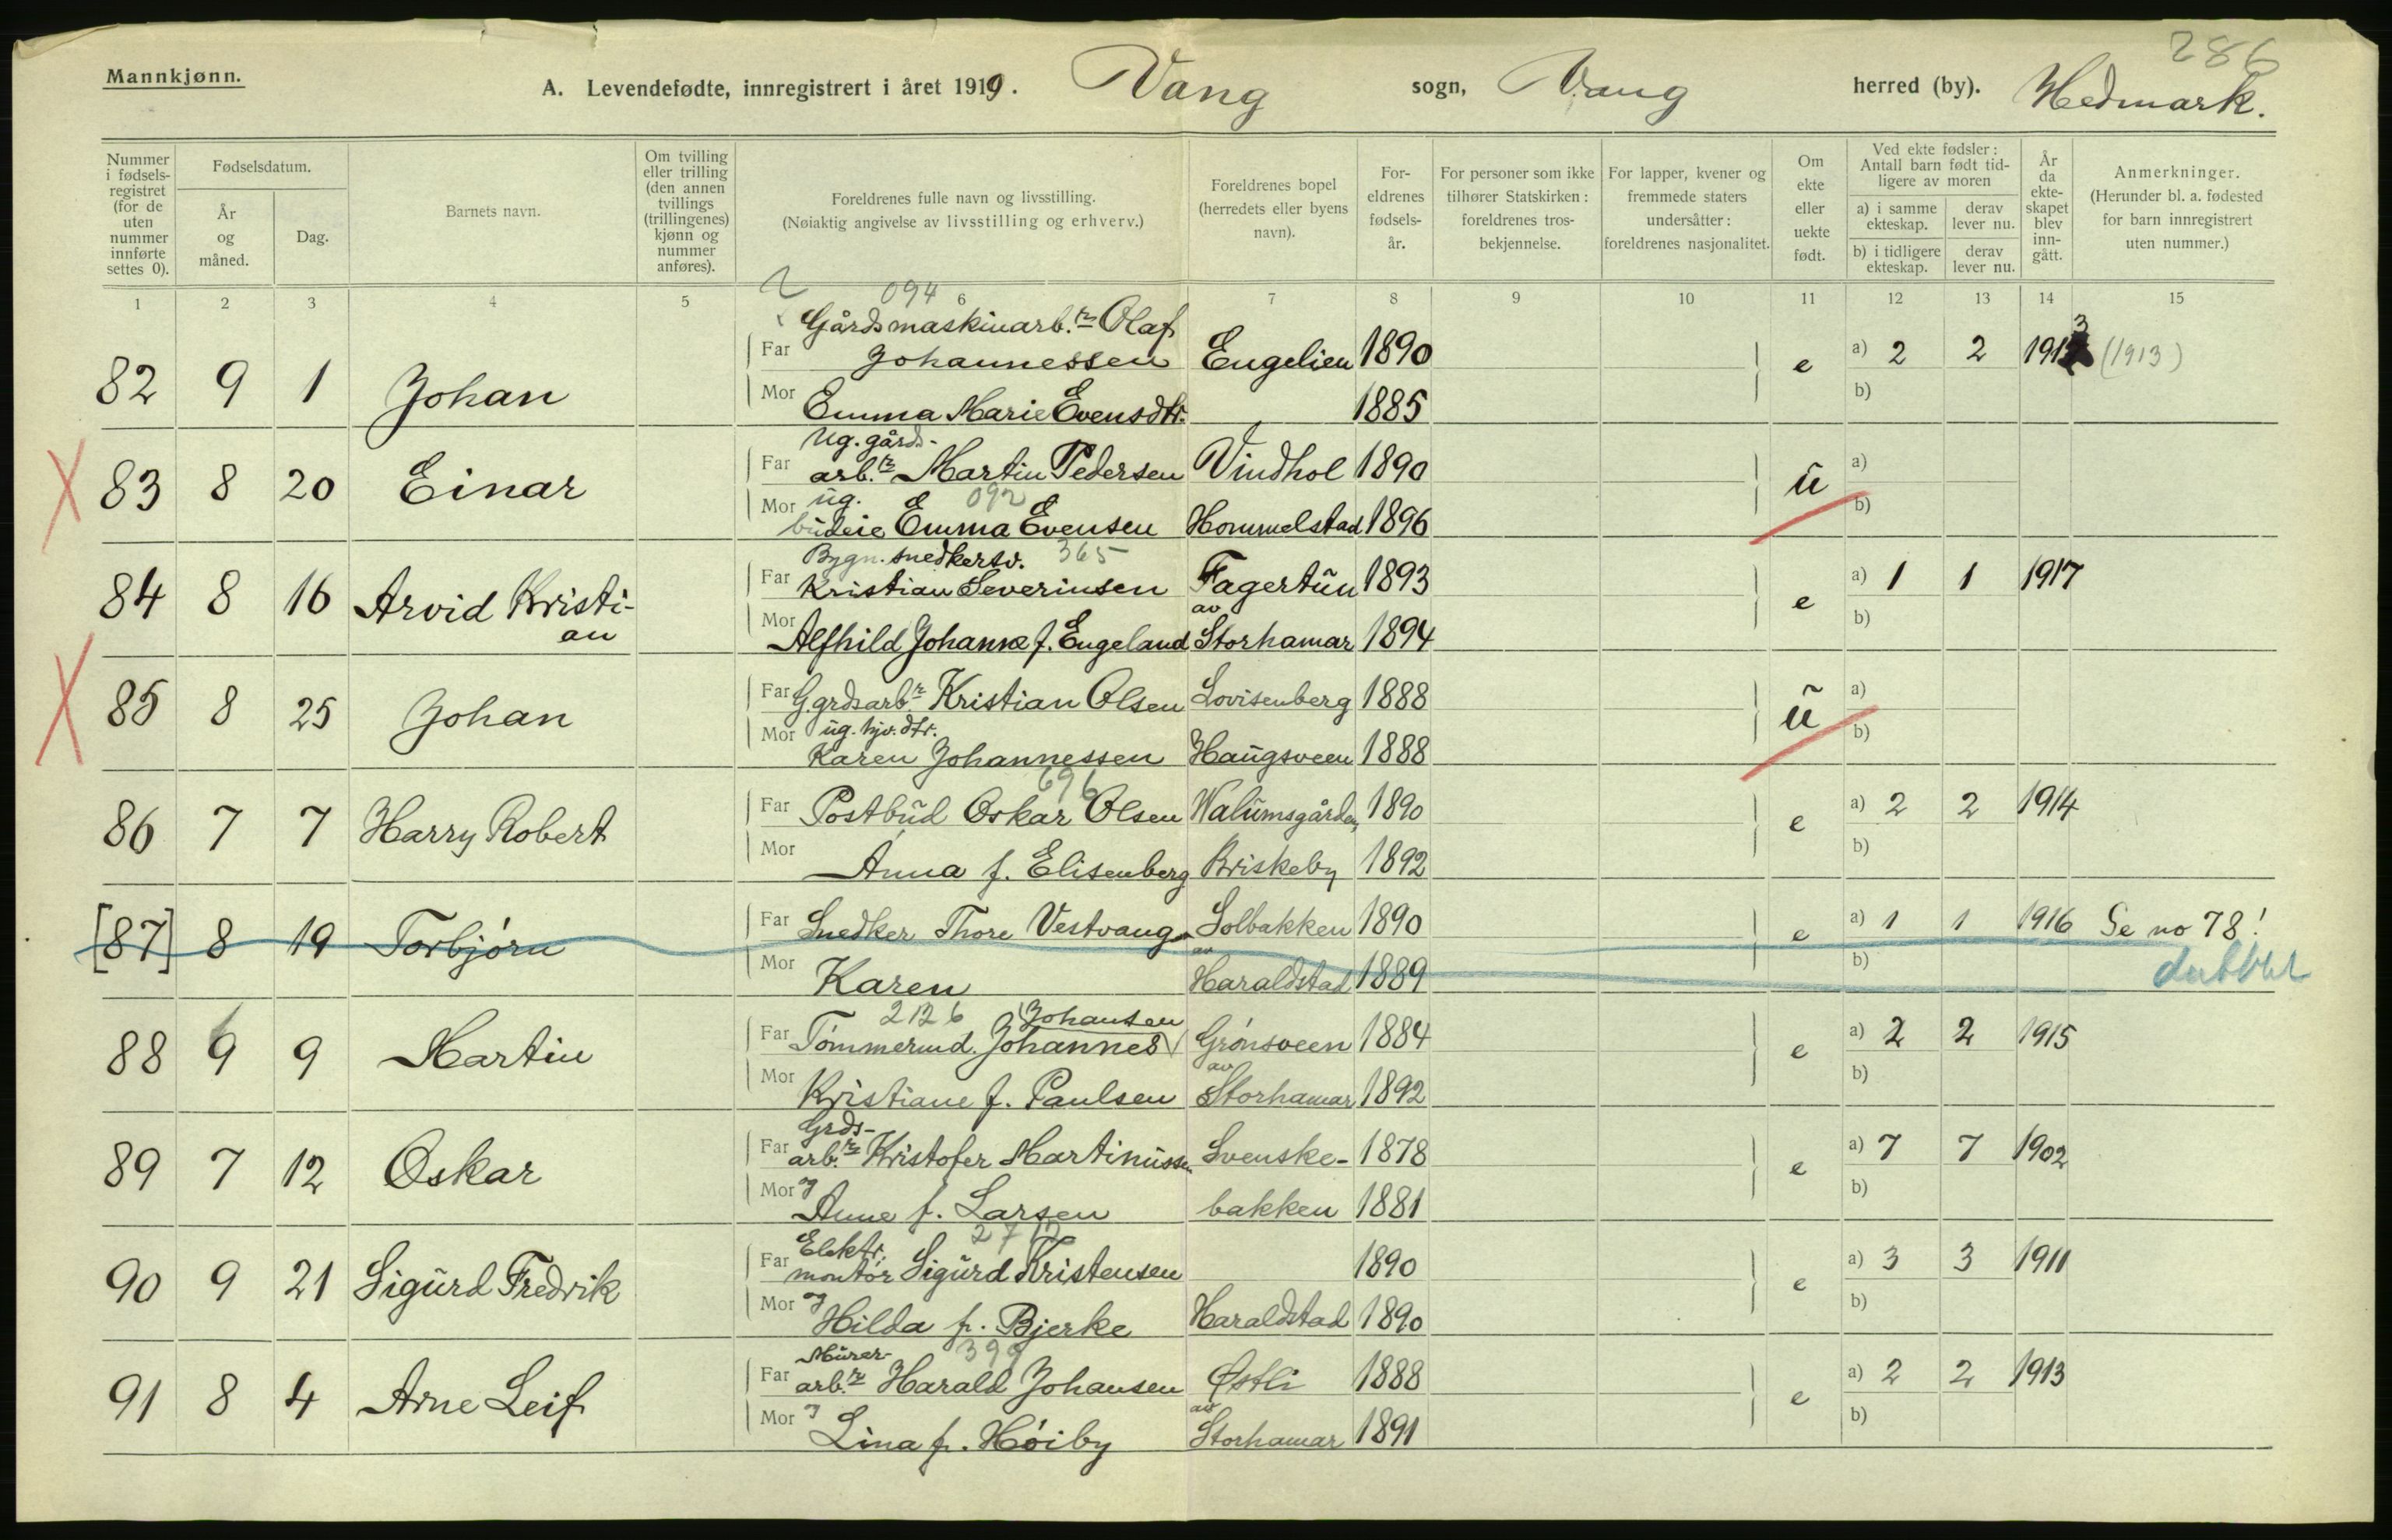 286
Mannkjønn.
A. Levendefødte, innregistrert i året 1919. Vang sogn, Vang herred (by). Hedmark.
Nummer i fødselsregistret (for de uten nummer innførte settes 0).
Fødselsdatum.
År og måned.
Dag.
Barnets navn.
Om tvilling eller trilling (den annen tvillings (trillingenes) kjønn og nummer anføres).
Foreldrenes fulle navn og livsstilling.
(Nøiaktig angivelse av livsstilling og erhverv.)
Foreldrenes bopel (herredets eller byens navn).
Foreldrenes fødselsår.
For personer som ikke tilhører Statskirken: foreldrenes trosbekjennelse.
For lapper, kvener og fremmede staters undersåtter: foreldrenes nasjonalitet.
Om ekte eller uekte født.
Ved ekte fødsler: Antall barn født tidligere av moren
a) i samme ekteskap. derav lever nu.
b) i tidligere ekteskap. derav lever nu.
År da ekteskapet blev inngått.
Anmerkninger.
(Herunder bl. a. fødested for barn innregistrert uten nummer.)
1 2 3 4 5 6 7 8 9 10 11 12 13 14 15
094
Gårdsmaskinarb.r Olaf
82 9 1 Johan Far Johannessen Engelien 1890 e a) 2 2 1913 (1913)
Mor Emma Marie Evensdtr. 1885 b)
Ug. gårds-
83 8 20 Einar Far arb.r Martin Pedersen Vindhol 1890 u a)
Mor ug. 092
budeie Emma Evensen Hommelstad 1896 b)
Bygn. snedkersv. 365
84 8 16 Arvid Kristian Far Kristian Severinsen Fagertun 1893 e a) 1 1 1917
Mor Alfhild Johanne f. Engeland av Storhamar 1894 b)
85 8 25 Johan Far G.grdsarb.r Kristian Olsen Lovisenberg 1888 u a)
Mor ug. hjv. dtr.
Karen Johannessen Haugsveen 1888 b)
696
86 7 7 Harry Robert Far Postbud Oskar Olsen Walumsgården 1890 e a) 2 2 1914
Mor Anna f. Elisenberg Briskeby 1892 b)
[87] 8 19 Torbjørn Far Snedker Thore Vestvang Solbakken 1890 e a) 1 1 1916 Se no 78!
Mor Karen av Haraldstad 1889 b) dubblet
2126 Johansen
88 9 9 Martin Far Tømmermd. Johannes Grønsveen 1884 e a) 2 2 1915
Mor Kristiane f. Paulsen av Storhamar 1892 b)
Grds-
89 7 12 Oskar Far arb.r Kristofer Martinussen Svenske- 1878 e a) 7 7 1902
Mor og Anne f. Larsen bakken 1881 b)
Elektr.
90 9 21 Sigurd Fredrik Far montør Sigurd Kristensen 1890 e a) 3 3 1911
Mor og Hilda f. Bjerke Haraldstad 1890 b)
Murer-
91 8 4 Arne Leif Far arb.r Harald Johansen Østli 1888 e a) 2 2 1913
Mor og Lina f. Høiby av Storhamar 1891 b)